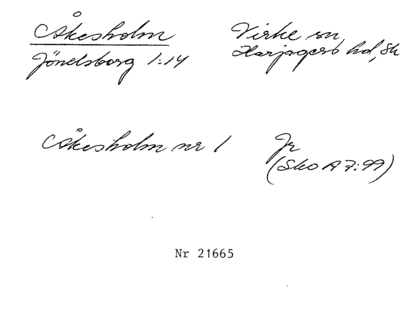 Åkesholm
Virke sn,
Jönelsborg 1:14
Harjagers hd, Sk
Åkesholm nr 1
Jr
(Sko A 7:99)
Nr 21665